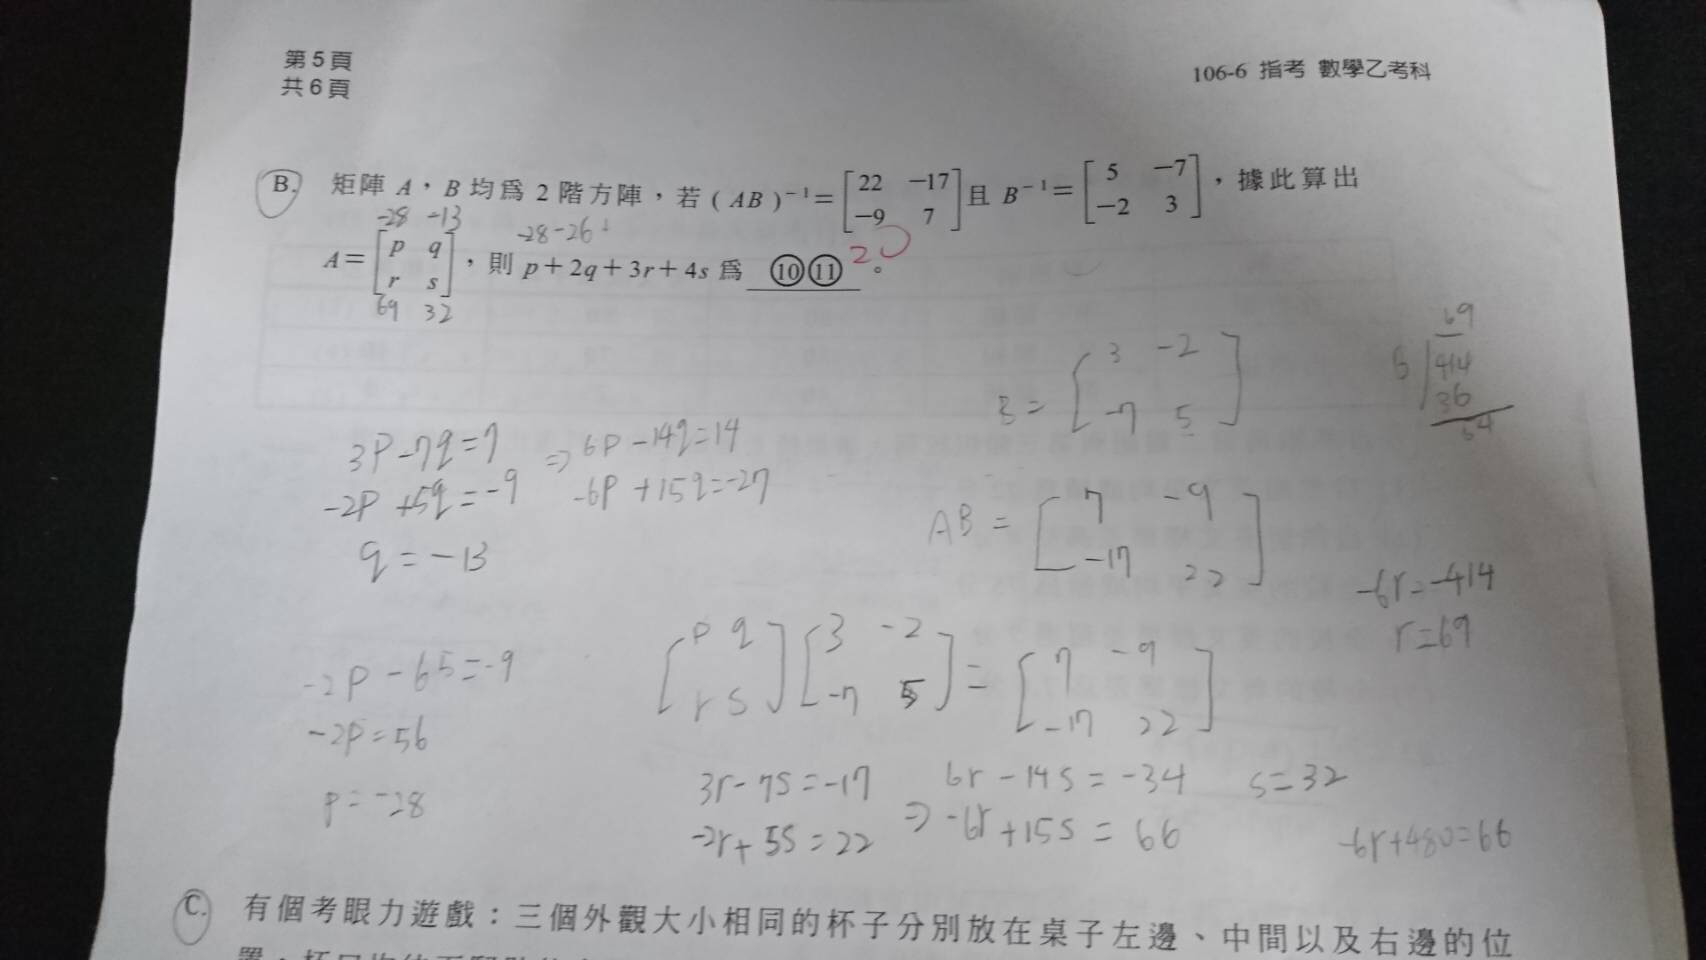 第5頁
共6頁
106-6 指考 數學乙考科
B. 矩陣 A，B 均為 2 階方陣，若 (AB)⁻¹=[22 −17; −9 7] 且 B⁻¹=[5 −7; −2 3]，據此算出
-28 -13
-28-26+
A=[p q; r s]，則 p+2q+3r+4s 為 ⑩⑪ 。
20
69 32
B = [3 -2; -7 5]
69
6 414
36
54
3p-7q=7 ⇒ 6p-14q=14
-2p+5q=-9 -6p+15q=-27
q=-13
AB = [7 -9; -17 22]
-6r=-414
r=69
[p q; r s][3 -2; -7 5]=[7 -9; -17 22]
-2p-65=-9
-2p=56
p=-28
3r-7s=-17 6r-14s=-34 s=32
-2r+5s=22 ⇒ -6r+15s=66
-6r+480=66
C. 有個考眼力遊戲：三個外觀大小相同的杯子分別放在桌子左邊、中間以及右邊的位